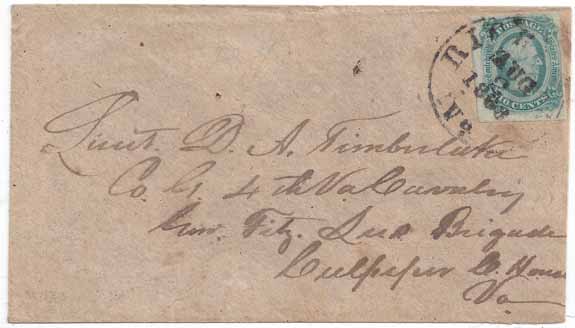 RICH
AUG
1863
Va.
CENTS
Lieut. D. A. Timberlake
Co G 4th Va Cavalry
Gen. Fitz. Lee's Brigade
Culpeper C. House
Va